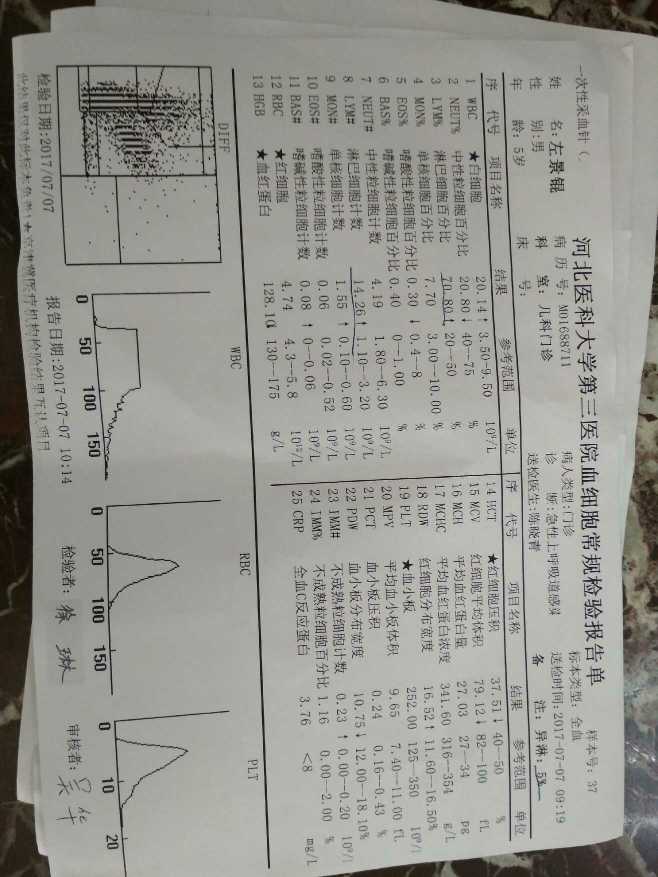 一次性采血针(
河北医科大学第三医院血细胞常规检验报告单
样本号: 37
姓 名:左景锟 病 历 号: M01688711 病人类型:门诊 标本类型: 全血
性 别:男 科 室: 儿科门诊 诊 断:急性上呼吸道感染 送检时间:2017-07-07 09:19
年 龄: 5岁 床 号: 送检医生:陈晓青 备 注: 异淋:5%
序 代号 项目名称 结果 参考范围 单位 序 代号 项目名称 结果 参考范围 单位
1 WBC ★白细胞 20.14↑ 3.50-9.50 10⁹/L 14 HCT ★红细胞压积 37.51↓ 40--50 %
2 NEUT% 中性粒细胞百分比 20.80↓ 40--75 % 15 MCV 红细胞平均体积 79.12↓ 82--100 fL
3 LYM% 淋巴细胞百分比 70.80↑ 20--50 % 16 MCH 平均血红蛋白量 27.03 27--34 pg
4 MON% 单核细胞百分比 7.70 3.00--10.00 % 17 MCHC 平均血红蛋白浓度 341.60 316--354 g/L
5 EOS% 嗜酸性粒细胞百分比 0.30 ↓ 0.4--8 % 18 RDW 红细胞分布宽度 16.52↑ 11.60--16.50%
6 BAS% 嗜碱性粒细胞百分比 0.40 0--1.00 % 19 PLT ★血小板 252.00 125--350 10⁹/L
7 NEUT# 中性粒细胞计数 4.19 1.80--6.30 10⁹/L 20 MPV 平均血小板体积 9.65 7.40--11.00 fL
8 LYM# 淋巴细胞计数 14.26↑ 1.10--3.20 10⁹/L 21 PCT 血小板压积 0.24 0.16--0.43 %
9 MON# 单核细胞计数 1.55 ↑ 0.10--0.60 10⁹/L 22 PDW 血小板分布宽度 10.75↓ 12.00--18.10%
10 EOS# 嗜酸性粒细胞计数 0.06 0.02--0.52 10⁹/L 23 IMM# 不成熟粒细胞计数 0.23 ↑ 0.00--0.20 10⁹/L
11 BAS# 嗜碱性粒细胞计数 0.08 ↑ 0--0.06 10⁹/L 24 IMM% 不成熟粒细胞百分比 1.16 0.00--2.00 %
12 RBC ★红细胞 4.74 4.3--5.8 10¹²/L 25 CRP 全血C反应蛋白 3.76 <8 mg/L
13 HGB ★血红蛋白 128.1 130--175 g/L
DIFF WBC RBC PLT
0 50 100 150 0 50 100 150 0 10 20
检验日期:2017/07/07 报告日期:2017-07-07 10:14 检验者: 徐琳 审核者:
此结果仅对此标本负责!★京津冀医疗机构检验结果互认项目